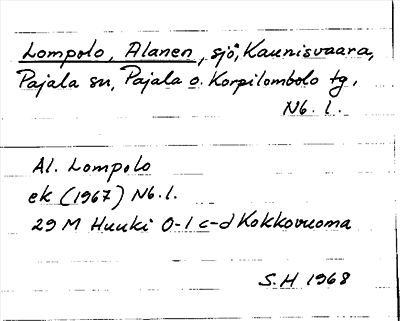 Lompolo, Alanen, sjö, Kaunisvaara,
Pajala sn, Pajala o. Korpilombolo tg,
Nb. l.
Al. Lompolo
ek (1967) Nb. l.
29 M Huuki 0-1 c-d Kokkovuoma
S.H 1968